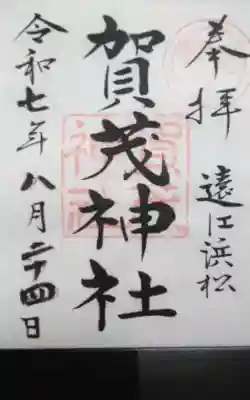 奉拝 遠江浜松
賀茂神社
令和七年八月二十四日